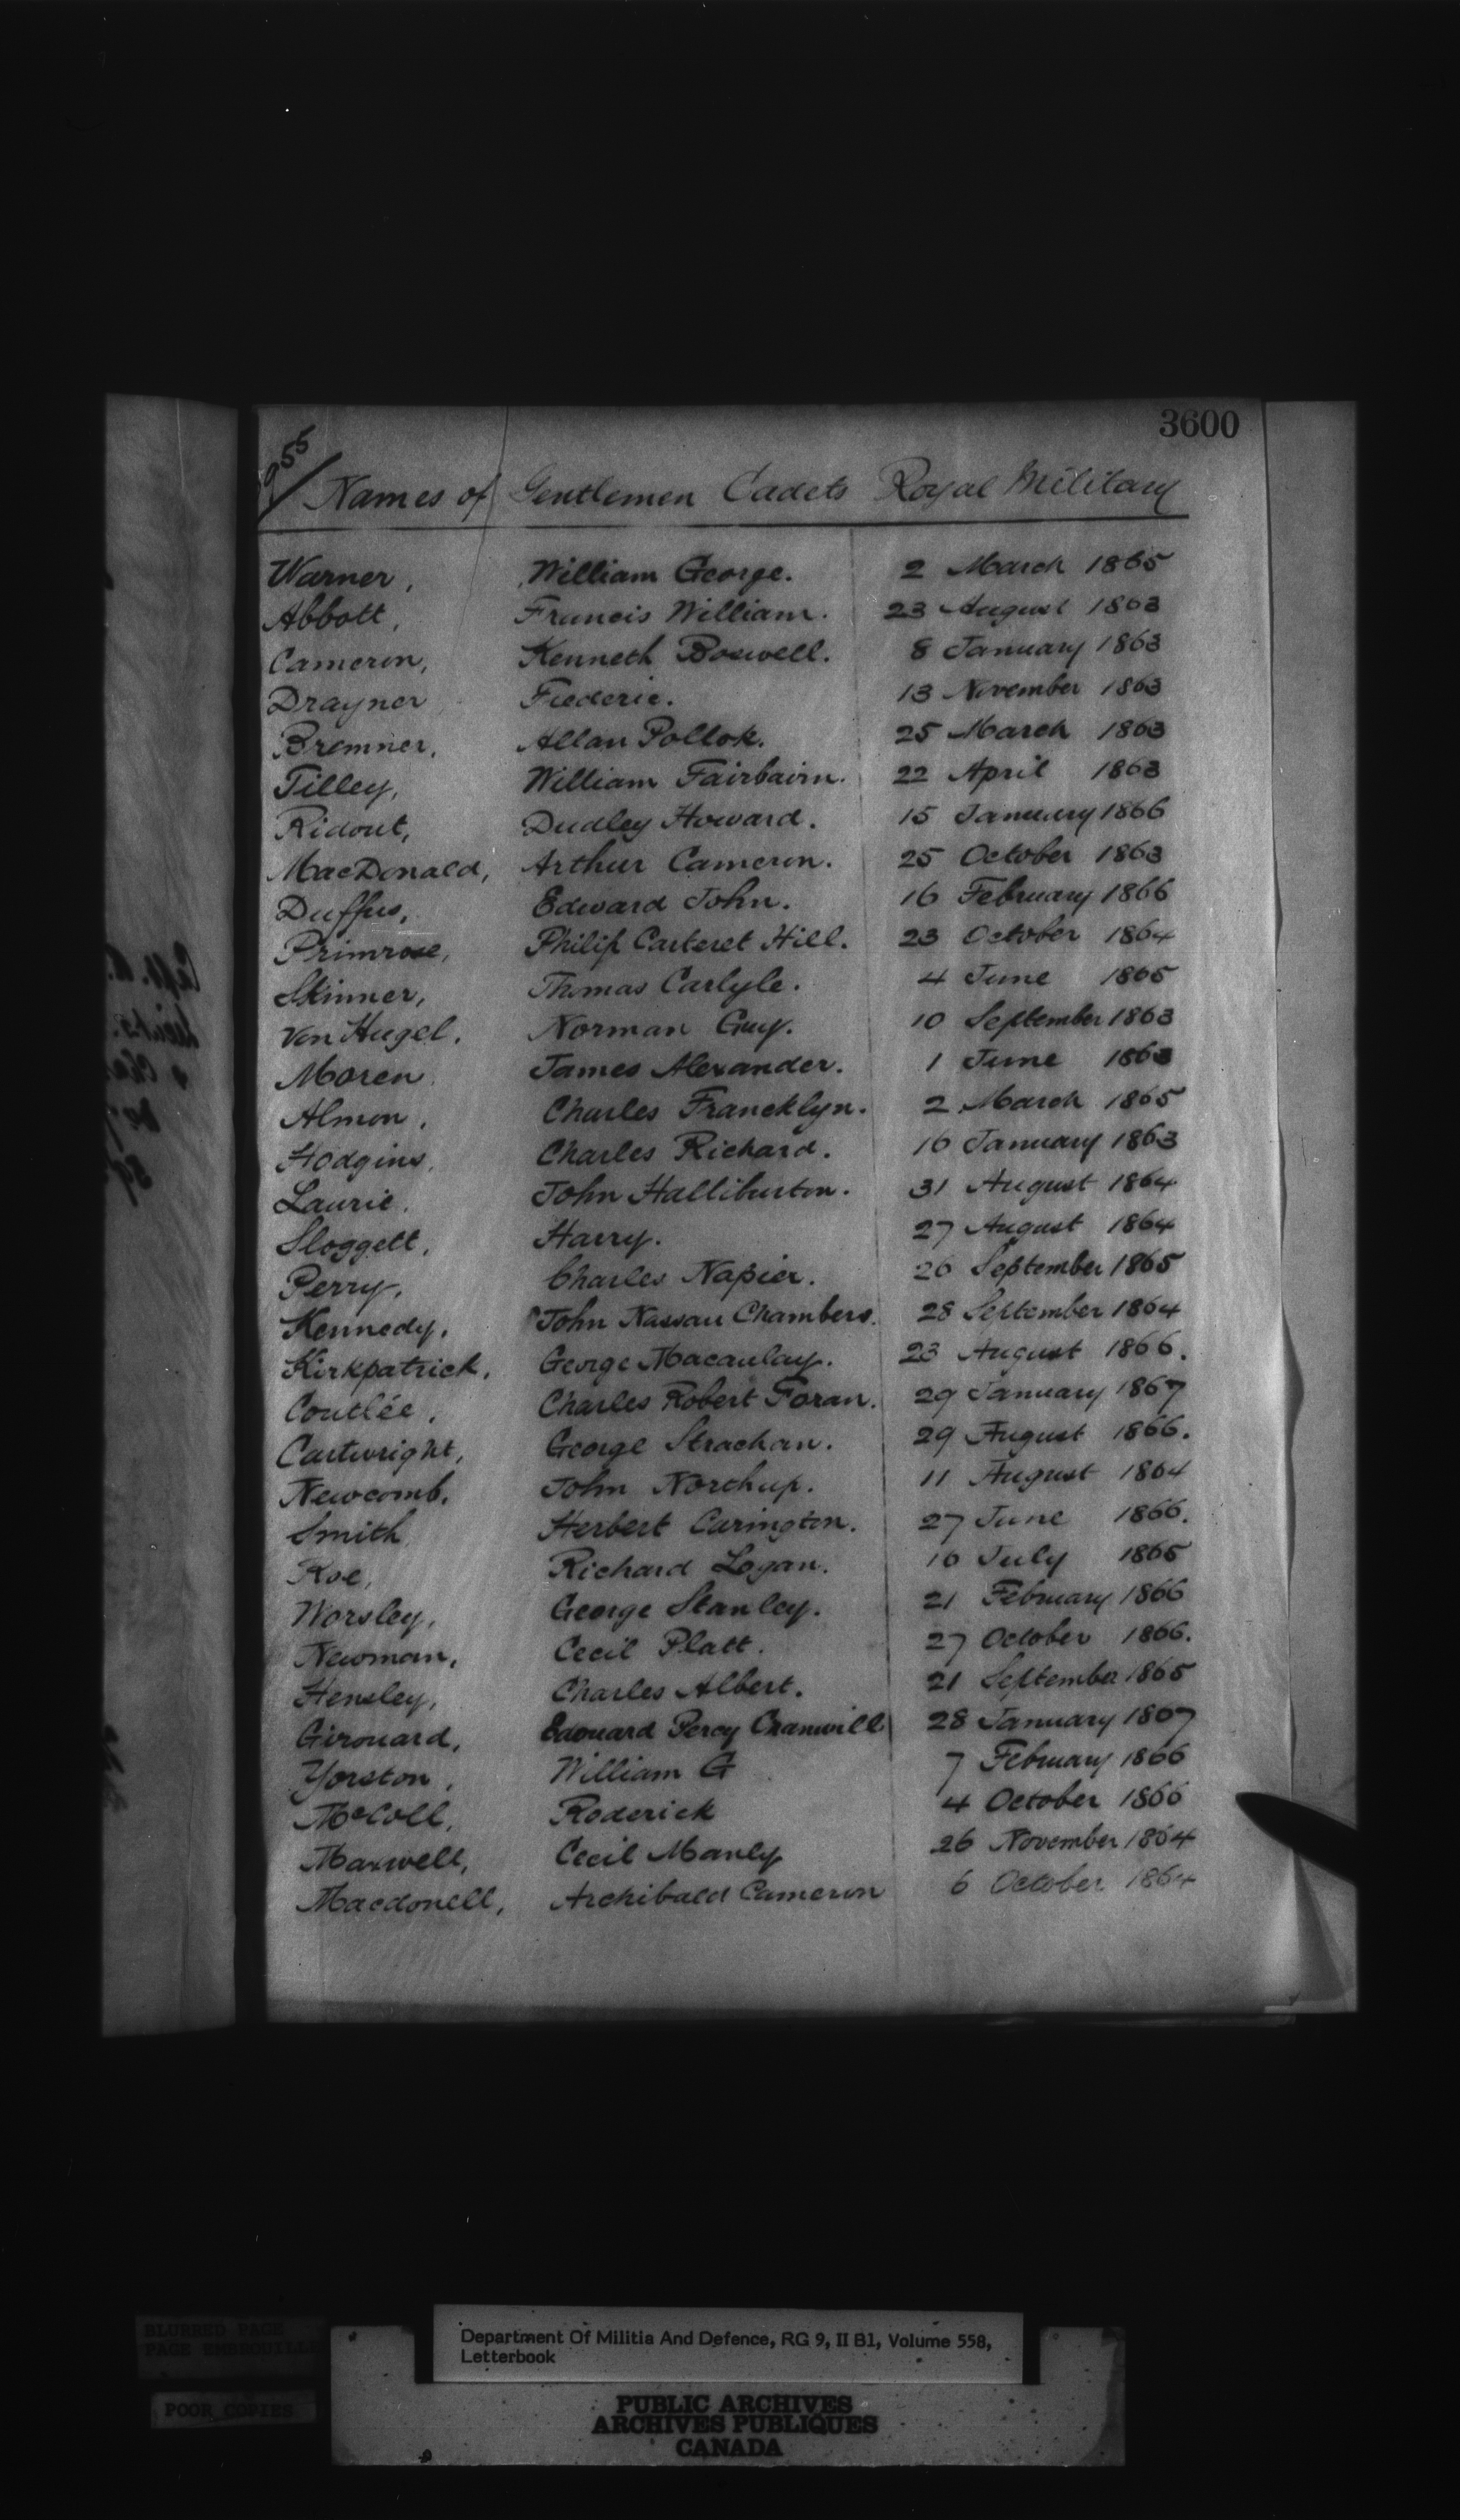 3600
955
Names of Gentlemen Cadets Royal Military
Warner, William George. 2 March 1865
Abbott, Francis William. 23 August 1863
Cameron, Kenneth Boswell. 8 January 1863
Drayner Frederic. 13 November 1863
Bremner, Allan Pollok. 25 March 1863
Tilley, William Fairbairn. 22 April 1863
Ridout, Dudley Howard. 15 January 1866
MacDonald, Arthur Cameron. 25 October 1863
Duffus, Edward John. 16 February 1866
Primrose, Philip Carteret Hill. 23 October 1864
Skinner, Thomas Carlyle. 4 June 1865
Von Hugel. Norman Guy. 10 September 1863
Moren James Alexander. 1 June 1863
Almon, Charles Francklyn. 2 March 1865
Hodgins, Charles Richard. 16 January 1863
Laurie, John Halliburton. 31 August 1864
Sloggett, Harry. 27 August 1864
Perry, Charles Napier. 26 September 1865
Kennedy, John Nassau Chambers. 28 September 1864
Kirkpatrick, George Macaulay. 23 August 1866.
Coutlée, Charles Robert Foran. 29 January 1867
Cartwright, George Strachan. 29 August 1866.
Newcomb, John Northup. 11 August 1864
Smith Herbert Carington. 27 June 1866.
Roe, Richard Logan. 16 July 1865
Worsley, George Stanley. 21 February 1866
Newman, Cecil Platt. 27 October 1866.
Hensley, Charles Albert. 21 September 1865
Girouard, Edouard Percy Cranwill 28 January 1867
Yorston, William G 7 February 1866
McColl, Roderick 4 October 1866
Maxwell, Cecil Manly 26 November 1864
Macdonell, Archibald Cameron 6 October 1864
BLURRED PAGE
PAGE EMBROUILLEE
POOR COPIES
Department Of Militia And Defence, RG 9, II B1, Volume 558,
Letterbook
PUBLIC ARCHIVES
ARCHIVES PUBLIQUES
CANADA